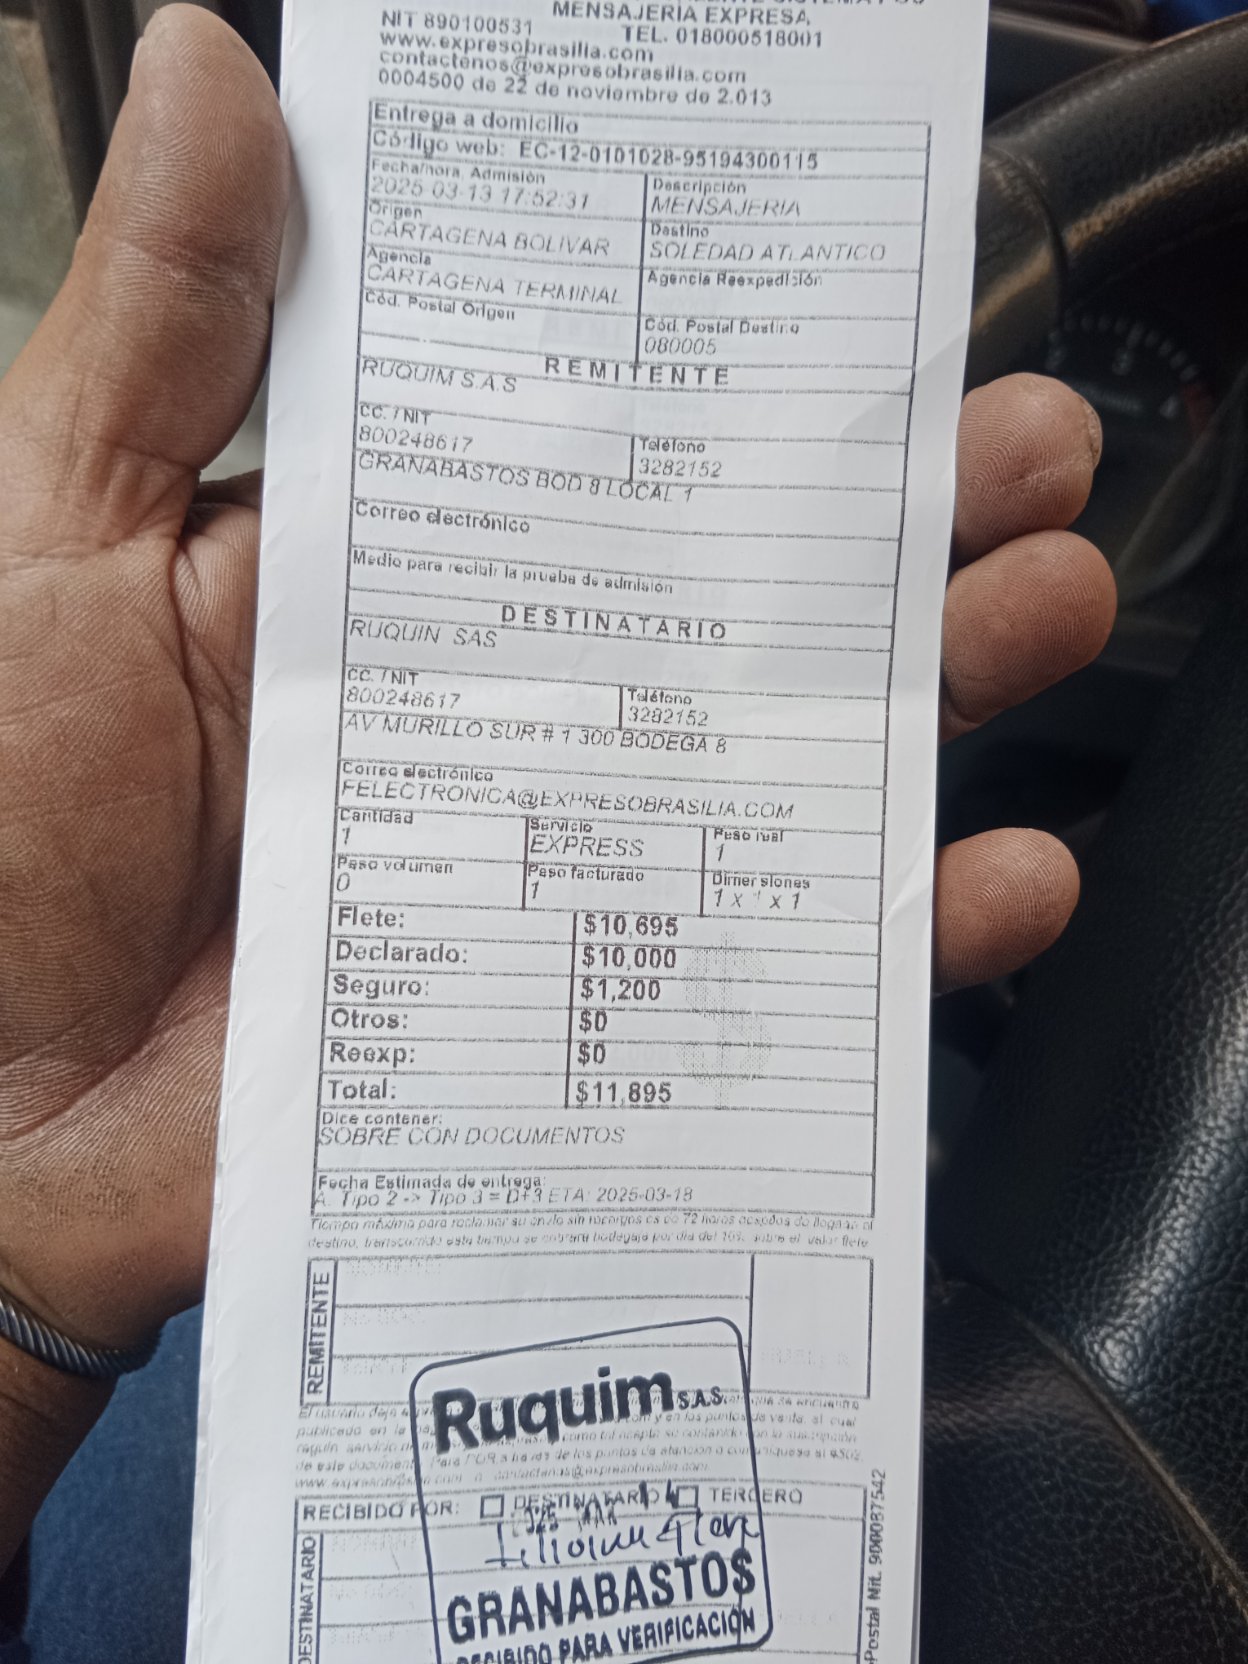 MENSAJERIA EXPRESA
NIT 890100531 TEL. 018000518001
www.expresobrasilia.com
contactenos@expresobrasilia.com
0004500 de 22 de noviembre de 2.013
Entrega a domicilio
Código web: EC-12-0101028-95194300115
Fecha/hora. Admisión
2025-03-13 17:52:31
Descripción
MENSAJERIA
Origen
CARTAGENA BOLIVAR
Destino
SOLEDAD ATLANTICO
Agencia
CARTAGENA TERMINAL
Agencia Reexpedición
Cód. Postal Origen
Cód. Postal Destino
080005
REMITENTE
RUQUIM S.A.S
CC. / NIT
800248617
Teléfono
3282152
GRANABASTOS BOD 8 LOCAL 1
Correo electrónico
Medio para recibir la prueba de admisión
DESTINATARIO
RUQUIN SAS
CC. / NIT
800248617
Teléfono
3282152
AV MURILLO SUR # 1 300 BODEGA 8
Correo electrónico
FELECTRONICA@EXPRESOBRASILIA.COM
Cantidad
1
Servicio
EXPRESS
Peso real
1
Peso volumen
0
Peso facturado
1
Dimensiones
1 x 1 x 1
Flete: $10,695
Declarado: $10,000
Seguro: $1,200
Otros: $0
Reexp: $0
Total: $11,895
Dice contener:
SOBRE CON DOCUMENTOS
Fecha Estimada de entrega:
A. Tipo 2 -> Tipo 3 = D+3 ETA: 2025-03-18
Tiempo máximo para reclamar su envío sin recargos es de 72 horas después de llegar al
destino, transcurrido este tiempo se cobrará bodegaje por día del 10% sobre el valor flete
REMITENTE
Ruquim S.A.S.
publicado en la y en los puntos de venta, el cual
de este documento. Para PQR a través de los puntos de atención o
RECIBIDO POR: DESTINATARIO TERCERO
DESTINATARIO
GRANABASTOS
RECIBIDO PARA VERIFICACIÓN
Postal Nit. 900087542